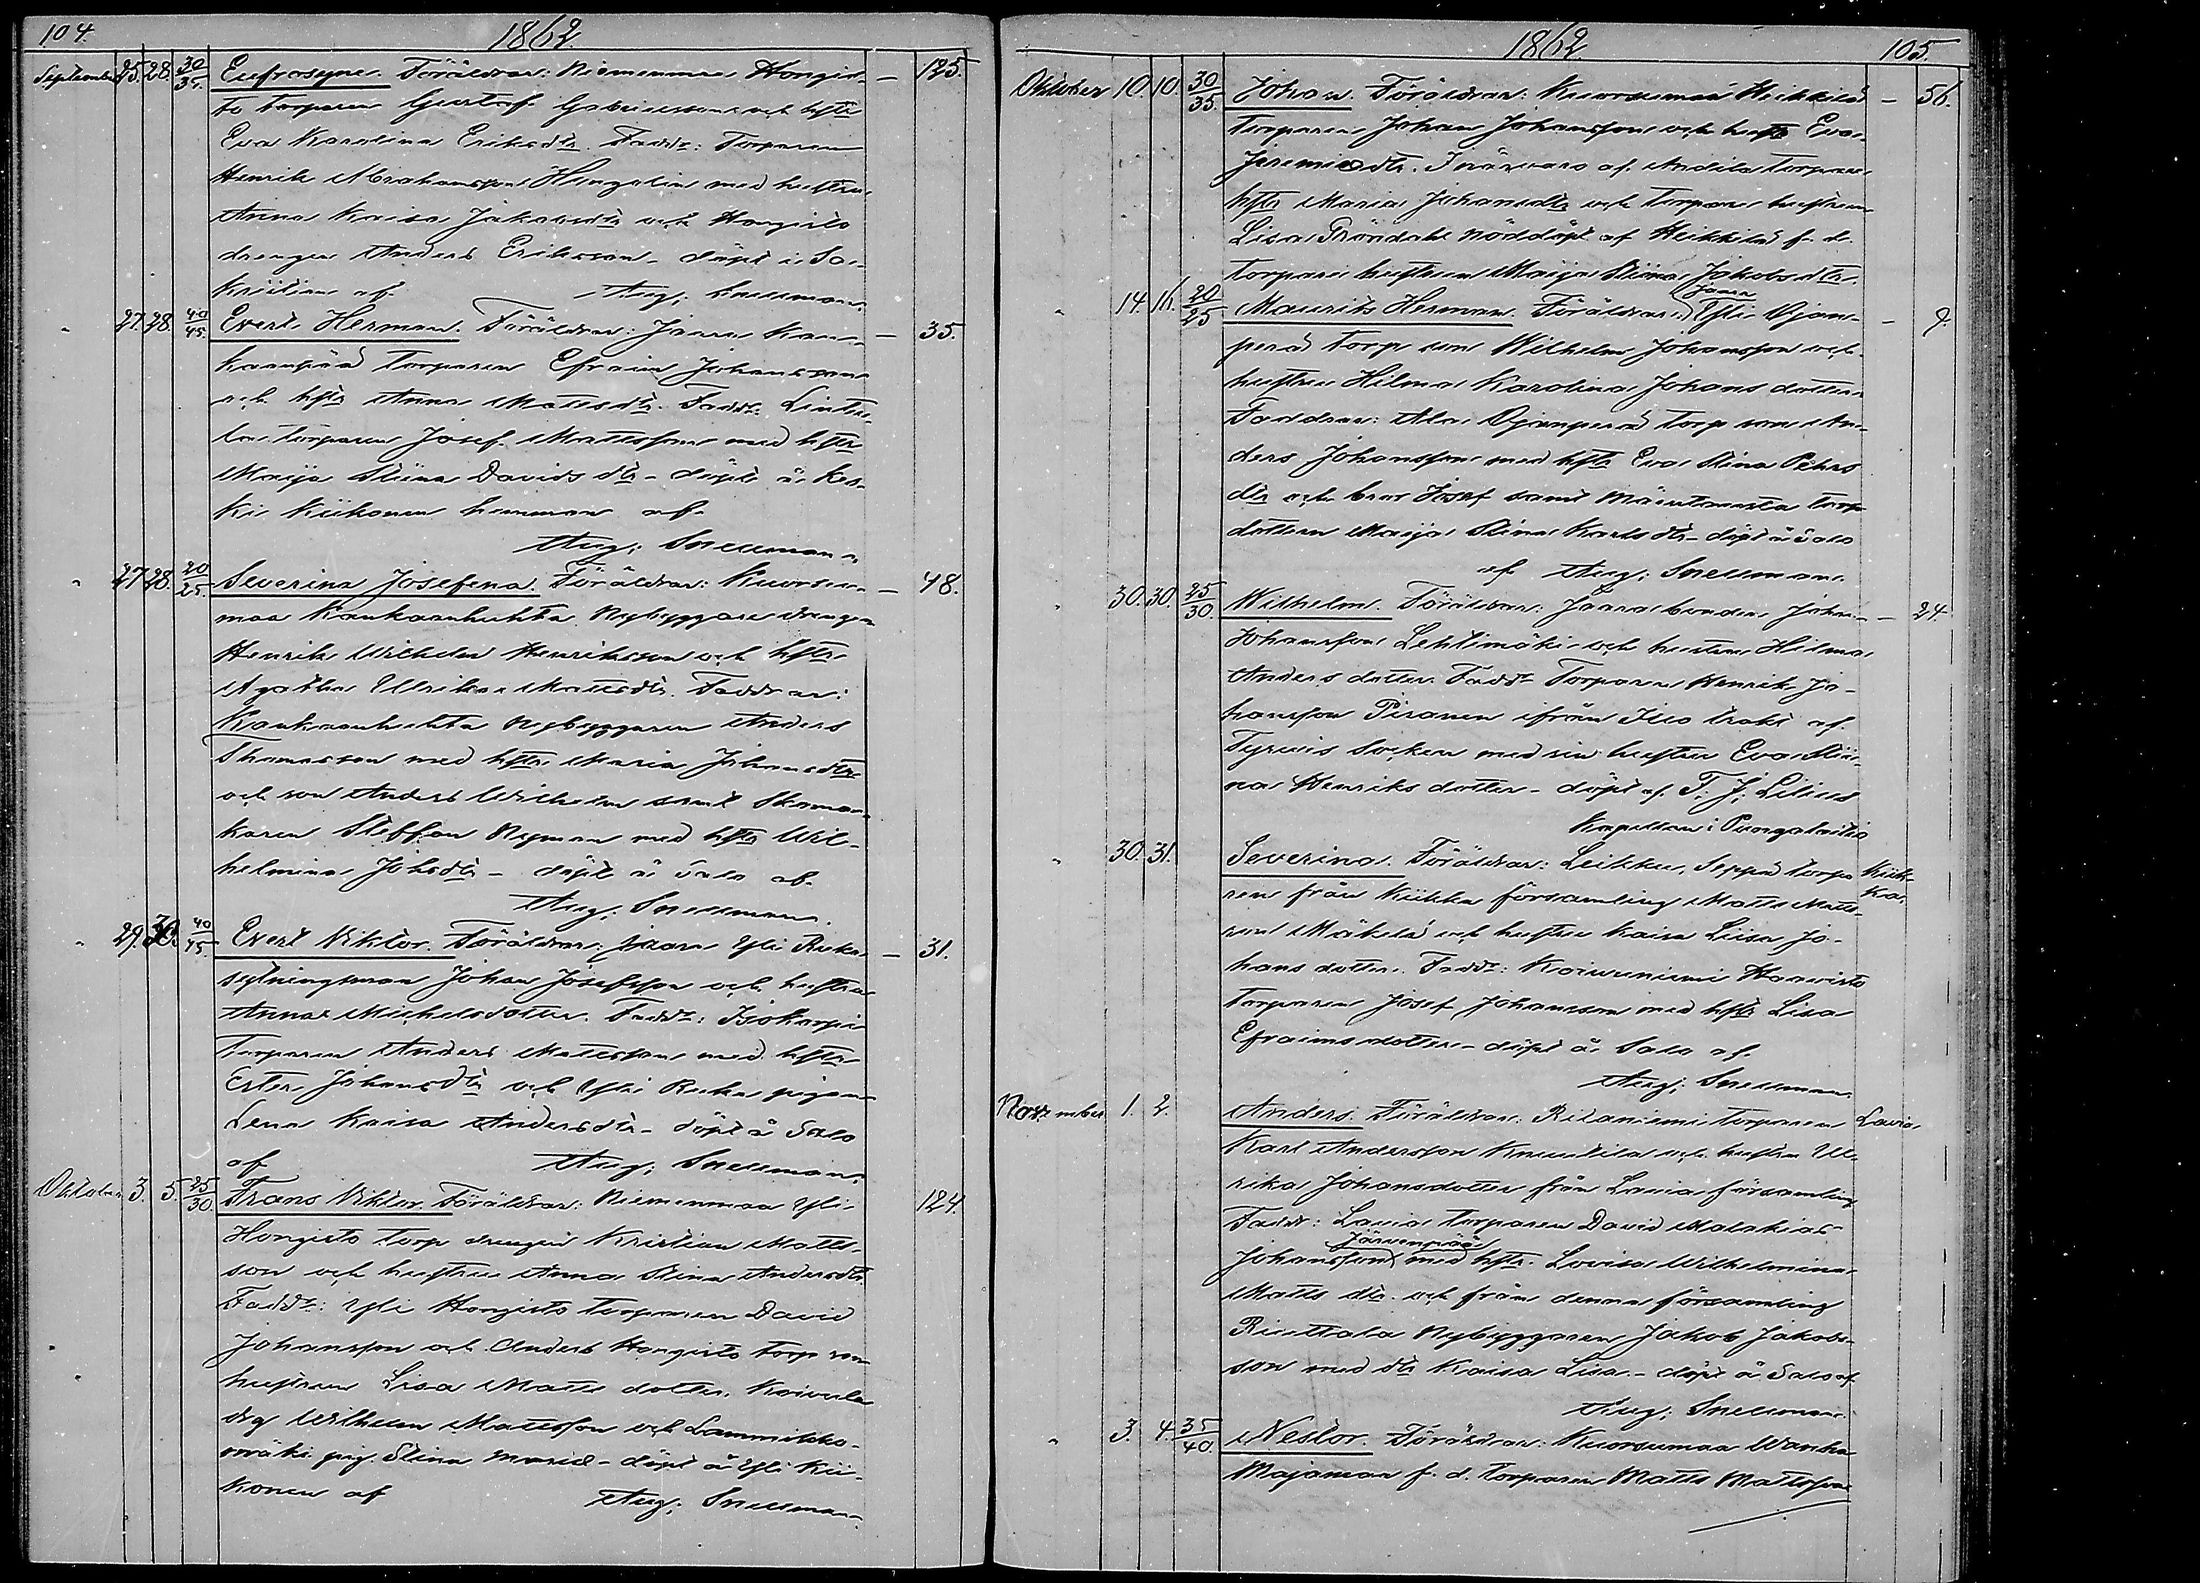 104.
1862.
September 25. 28. 30/35. Eufrosyne. Föräldrar: Niemenmaa Hongis- — 125.
to torparen Gustaf Gabrielsson och hstr
Eva Karolina Eriksdtr. Faddr: Torparen
Henrik Abrahamsson Hongelin med hustru
Anna Kaisa Jakobsdtr och Hongisto
drengen Anders Eriksson - döpt i Sa-
kristian af Aug: Snellman.
" 27. 28. 40/45. Evert Herman. Föräldrar: Jaara Kan- — 35.
kaanpää torparen Efraim Johansson
och hstr Anna Mattsdtr. Faddr: Lintu-
la torparen Josef Mattsson med hstr
Maija Stiina Davids dtr - döpt å Kes-
ki Kiikonen hemman af
Aug: Snellman.
" 27. 28. 20/25. Severina Josefena. Föräldrar: Kuorsu- — 48.
maa Kankaanhuhta Nybyggare drengen
Henrik Wilhelm Henriksson och hstr
Agatha Ulrika Mattsdtr. Faddrar:
Kankaanhuhta Nybyggaren Anders
Thomasson med hstr Maria Johansdtr
och son Anders Wilhelm samt Skoma-
karen Steffan Nyman med hstr Wil-
helmina Johsdtr - döpt å Salo af
Aug: Snellman.
" 29. 30. 40/45. Evert Viktor. Föräldrar: Jaara Yli Ruka — 31.
sytningsman Johan Josefsson och hustru
Anna Michelsdotter. Faddr: Isokorpi
Torparen Anders Mattsson med hstr
Ester Johansdtr och Yli Ruka pigan
Lena Kaisa Andersdtr - döpt å Salo
af Aug: Snellman.
Oktober 3. 5. 25/30. Frans Viktor. Föräldrar: Niemenmaa Yli 124.
Hongisto torp drengen Kristian Matts-
son och hustru Anna Stina Andersdtr
Faddr: Yli Hongisto torparen David
Johansson och Anders Hongisto torp son
hustrun Lisa Matts dotter, Koivula
drg Wilhelm Mattsson och Lammikko-
mäki pig. Stina Maria - döpt å Yli Kii-
konen af Aug: Snellman.
1862.
105.
Oktober 10. 10. 30/35. Johan. Föräldrar: Kuorsumaa Heikkilä — 56.
torparen Johan Johansson och hustr Eva
Jeremiædtr. af Andila torpare
hstr Maria Johansdtr och torpare hustrun
Lisa Gröndahl nöddöpt af Heikkilä f. d.
torpare hustrun Maija Stiina Jakobsdtr.
Jaara
" 14. 16. 20/25 Maurits Herman. Föräldrar: Yli Ojan- — 9.
perä torp son Wilhelm Johansson och
hustru Hilma Karolina Johans dotter
Faddrar: Ala Ojanperä torp son An-
ders Johansson med hstr Eva Stina Pehrs
dtr och bror Josef samt Mäentausta torp
dottern Maija Stina Karlsdtr - döpt å Salo
af Aug: Snellman.
" 30. 30. 25/30. Wilhelm. Föräldrar: Jaara bonden Johan — 24.
Johansson Lehtimäki och hustru Hilma
Anders dotter. Faddr Torparen Henrik Jo-
hansson Piranen ifrån Iso trakt af
Tyrvis Socken med sin hustru Eva Stii-
na Henriks dotter - döpt af T: J: Lilius
Kapellan i Pungalaitio
" 30. 31. Severina. Föräldrar: Leikku, Seppä torpa Kiik-
ren från Kiikka församling Matts Matts- ka.
son Mäkelä och hustru Kaisa Liisa Jo-
hans dotter. Faddr: Koivuniemi Haavisto
Torparen Josef Johansson med hstr Lisa
Efraimsdotter - döpt å Salo af
Aug: Snellman.
November 1. 2. Anders. Föräldrar: Ritaniemi torparen Lavia
Karl Andersson Knuutila och hustru Ul-
rika Johansdotter från Lavia församling
Faddr: Lavia torparen David Malakias
Järvenpää
Johansson med hstr. Lovisa Wilhelmina
Matts dtr. och från denna församling
Riuttala Nybyggaren Jakob Jakobs-
son med dtr Kaisa Lisa. - döpt å Salo af
Aug: Snellman.
" 3. 4. 35/40. Nestor. Föräldrar: Kuorsumaa Wanha
Majamaa f. d. torparen Matts Mattsson